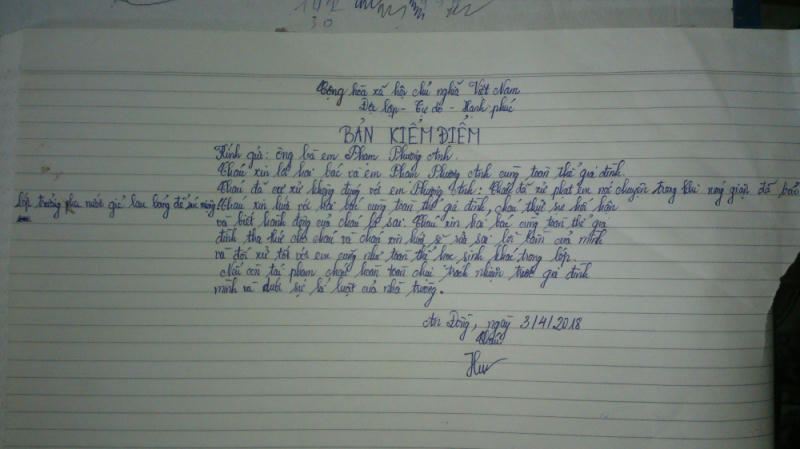 Cộng hòa xã hội chủ nghĩa Việt Nam
Độc lập - Tự do - Hạnh phúc
BẢN KIỂM ĐIỂM
Kính gửi: ông bà em Phạm Phương Anh.
Cháu xin lỗi hai bác và em Phạm Phương Anh cùng toàn thể gia đình.
Cháu đã cư xử không đúng với em Phương Anh: Cháu đã xử phạt em nói chuyện trong khi nóng giận đã bảo
lớp trưởng pha nước giẻ lau bảng để súc miệng. Cháu xin hứa với hai bác cùng toàn thể gia đình, cháu thực sự hối hận
và biết hành động của cháu là sai. Cháu xin hai bác cùng toàn thể gia
đình tha thứ cho cháu và cháu xin hứa sẽ sửa sai lỗi lầm của mình
và đối xử tốt với em cũng như toàn thể học sinh khác trong lớp.
Nếu còn tái phạm cháu hoàn toàn chịu trách nhiệm trước gia đình
mình và dưới sự kỉ luật của nhà trường.
An Đồng, ngày 3/4/2018
Cháu